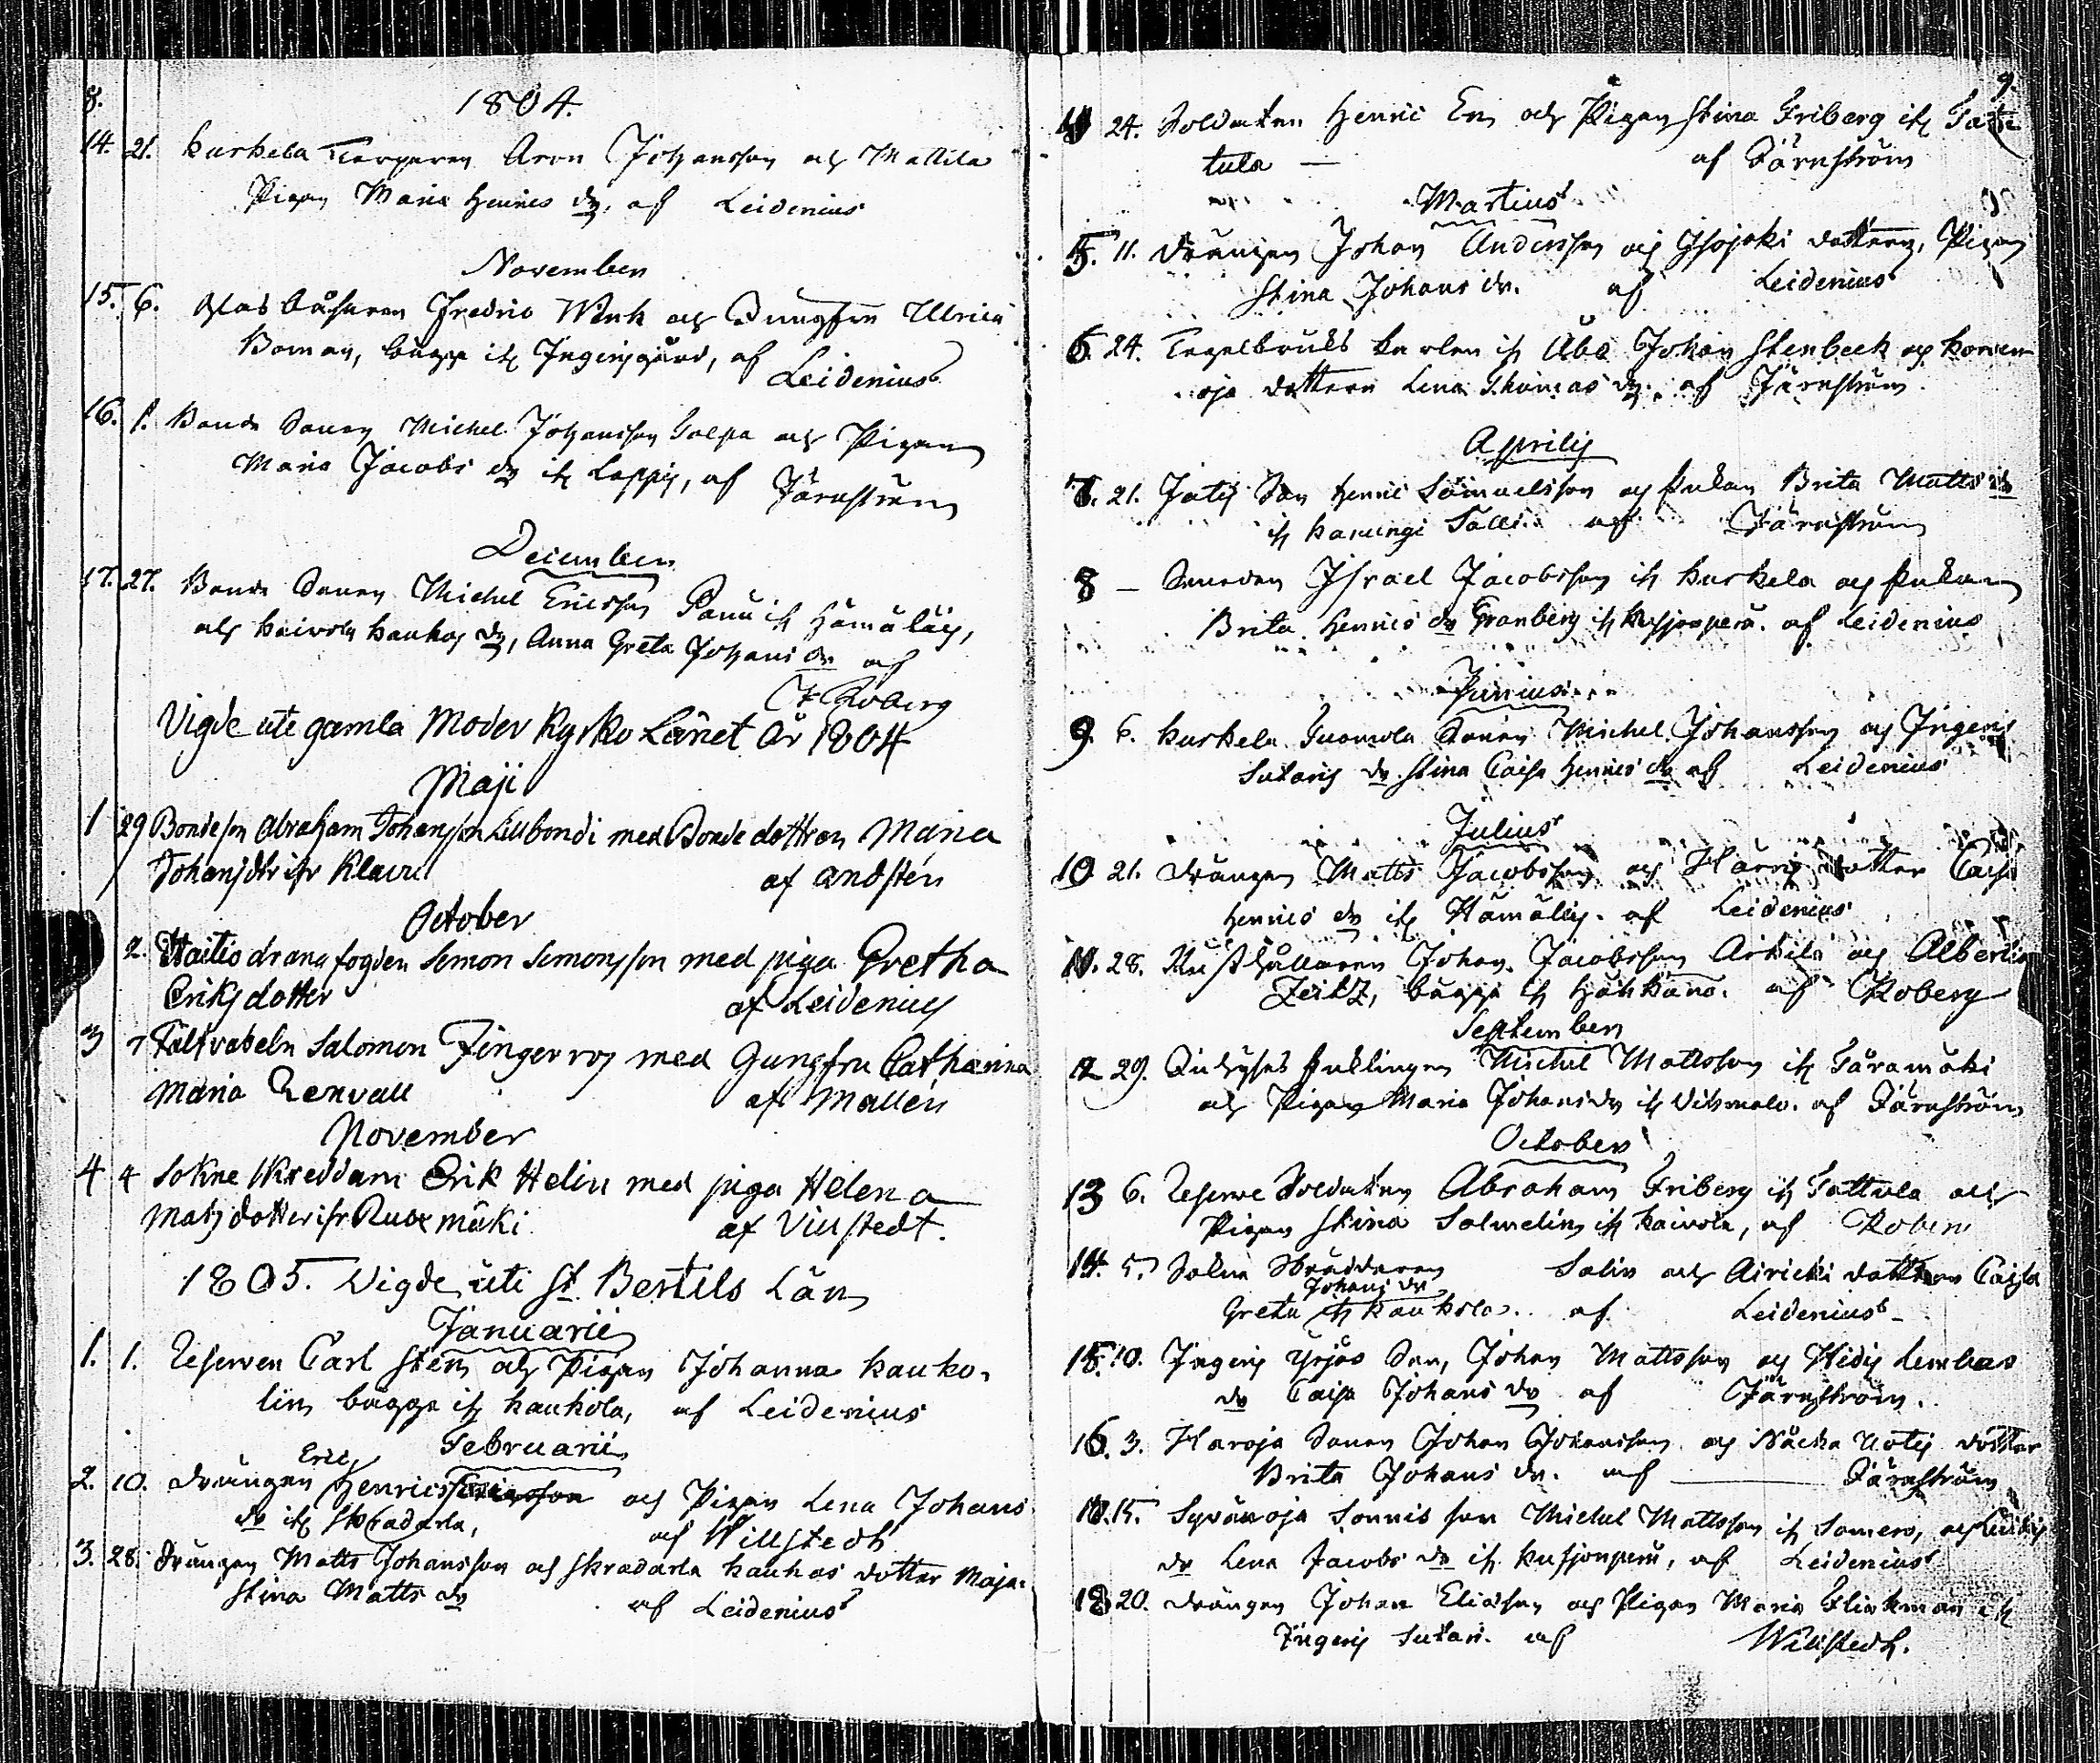 8.
1804.
14. 21. Kurkela Torparen Aron Johansson och Mattila
Pigan Maria Henrics dr, af Leidenius
November
15. 6. Glas Blåsaren Fredric Wenk och Jungfru Ulrica
Boman, bägge ifr Ingerisgård, af
Leidenius
16. 1. Bonde Sonen Michel Johansson och Pigan
Maria Jacobs dr ifr Lappis, af Järnström
December
17. 27. Bonde Sonen Michel Ericsson ifr Hämäläis,
och Kaivola Kaukas dr, Anna Greta Johans dr af
Roberg
Vigde uti gamla Moder Kyrko Länet År 1804
Maji
1 29 Bondeson Abraham Johansson Lillbondi med Bonde dottren Maria
Johansdtr ifr af Andstén
October
2. drang fogden Simon Simonsson med piga Gretha
Eriksdotter af Leidenius
3 7 Salomon Fingerroos med Jungfru Catharina
Maria Renvall af Mallén
November
4 4 Sokne skreddarn Erik Helin med piga Helena
Matsdotter ifr af Villstedt.
1805. Vigde uti St. Bertils Län
Januarii
1. 1. Reserven Carl Sten och Pigan Johanna Kauko-
lin bägge ifr Kaukola, af Leidenius
Februarii
Eric
2. 10. Drängen Henricsson och Pigan Lena Johans
dr ifr Skradarla, af Willstedt
3. 28. Drängen Matts Johansson och Skradarla Kaukas dotter Maja
Stina Matts dr af Leidenius
9.
4 24. Soldaten Henric En och Pigan Stina Friberg ifr Tatt
tula — af Järnström
Martius
5. 11. Drängen Johan Andersson och Isojoki dottern, Pigan
Stina Johans dr. af Leidenius
6. 24. Tegelbruks Karlen ifr Åbo Johan Stenbeck och
oja dottern Lena Thomas dr. af Järnström
Aprilis
7. 21. Son Henric Samuelsson och Enkan Brita Matts dr
ifr Kanungi af Järnström
8 — Smeden Israel Jacobsson ifr Kurkela och Enkan
Brita Henrics dr Granberg ifr af Leidenius
Junius
9. 6. Kurkela Tuomola Sonen Michel Johansson och Ingeris
Sutaris dr Stina Caisa Henrics dr af Leidenius
Julius
10 21. Drängen Matts Jacobsson och dotter Caisa
Henrics dr ifr Hämäläis. af Leidenius
11. 28. Rusthållaren Johan Jacobsson Arkila och Albertina
Zeitz, bägge ifr af Roberg
September
12 29. Enklingen Michel Mattsson ifr Täramäki
och Pigan Maria Johansdr ifr af Järnström
October
13 6. Reserve Soldaten Abraham Friberg ifr Tattula och
Pigan Stina Salmelin ifr Kaivola, af
14. 5. Sokne Skräddaren Salin och Airicki dottern Caisa
Johans dr
Greta ifr Kaukola. af Leidenius
15. 10. Ingeris Yrjäs Son, Johan Mattsson och
dr Caisa Johans dr af Järnström.
16. 3. Haroja Sonen Johan Johansson och dotter
Brita Johans dr. af — Järnström
15. Syvänoja Sonnis son Michel Mattsson ifr Somero, och
dr Lena Jacobs dr ifr af Leidenius
18 20. Drängen Johan Eliasson och Pigan Maria Flinkman ifr
Ingeris Sutari. af Willstedt.